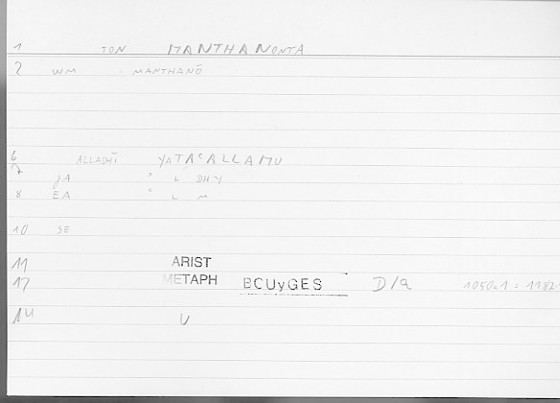 1 TON MANTHANONTA
2 WM MANTHANŌ
6 ALLADHĪ YATAcALLAMU
7 JA c L DHY
8 EA c L M
10 SE
11 ARIST
12 METAPH BCUyGES D/a 1050a1 : 1182
14 U